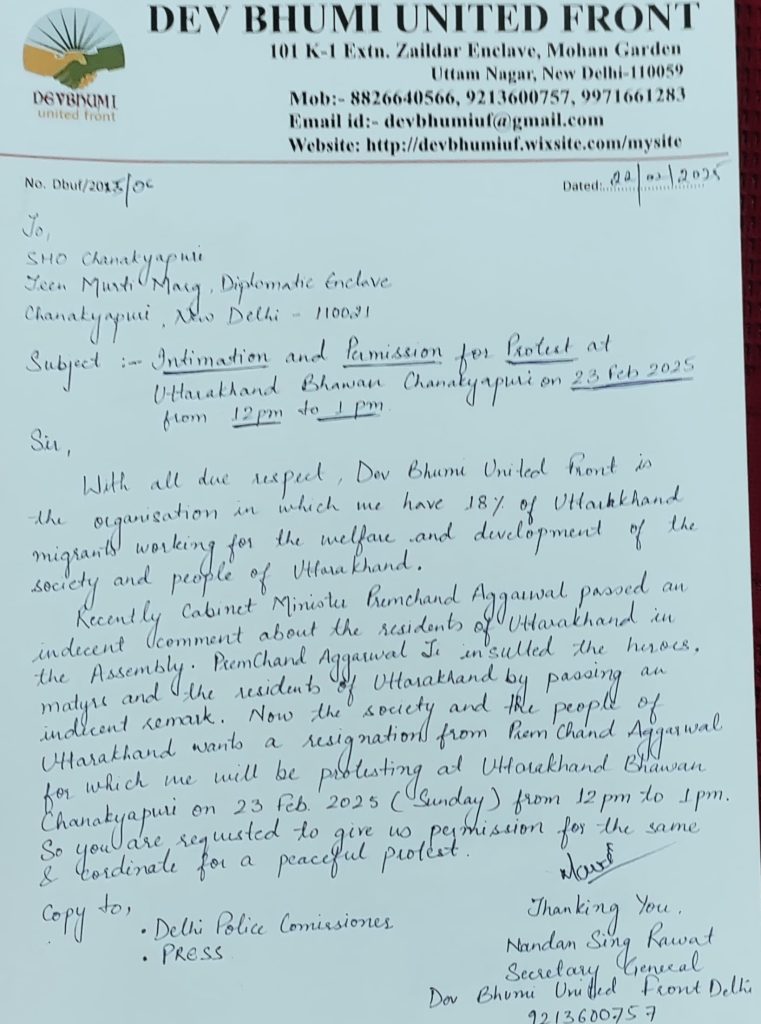 DEV BHUMI UNITED FRONT
101 K-1 Extn. Zaildar Enclave, Mohan Garden
Uttam Nagar, New Delhi-110059
Mob:- 8826640566, 9213600757, 9971661283
Email id:- devbhumiuf@gmail.com
Website: http://devbhumiuf.wixsite.com/mysite
DEVBHUMI
united front
No. Dbuf/201
Dated: 22/02/2025
To,
SHO Chanakyapuri
Teen Murti Marg, Diplomatic Enclave
Chanakyapuri, New Delhi - 110021
Subject :- Intimation and Permission for Protest at
Uttarakhand Bhawan Chanakyapuri on 23 Feb 2025
from 12pm to 1 pm
Sir,
With all due respect, Dev Bhumi United Front is
the organisation in which we have 18% of Uttarkhand
migrants working for the welfare and development of the
society and people of Uttarakhand.
Recently Cabinet Minister Premchand Aggarwal passed an
indecent comment about the residents of Uttarakhand in
the Assembly. PremChand Aggarwal Ji insulted the heroes,
matyrs and the residents of Uttarakhand by passing an
indicent remark. Now the society and the people of
Uttarakhand wants a resignation from Prem Chand Aggarwal
for which we will be protesting at Uttarakhand Bhawan
Chanakyapuri on 23 Feb. 2025 (Sunday) from 12 pm to 1pm.
So you are requested to give us permission for the same
& cordinate for a peaceful protest.
Copy to,
• Delhi Police Comissioner
• PRESS
Thanking You.
Nandan Sing Rawat
Secretary General
Dev Bhumi United Front Delhi
9213600757